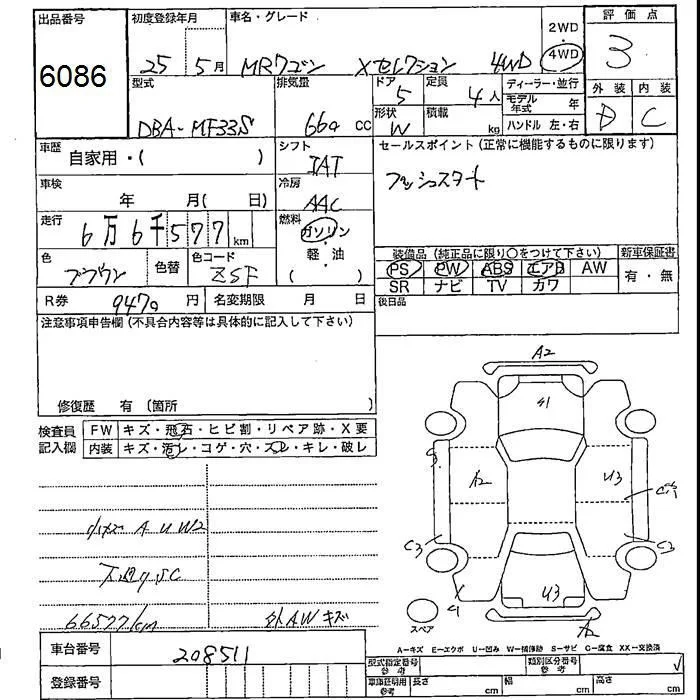 出品番号 初度登録年月 車名・グレード 2WD 評価点
6086 25年5月 MRワゴン Xセレクション 4WD 4WD 3
型式 排気量 ドア 定員 ディーラー・並行 外装 内装
DBA-MF33S 660cc 5 4人 モデル年式 年 D C
形状 積載 ハンドル 左・右
W kg
車歴 自家用・( ) シフト IAT セールスポイント(正常に機能するものに限ります)
車検 年 月( 日) 冷房 AAC プッシュスタート
走行 6万6千577km 燃料 ガソリン・軽油 ( )
色 ブラウン 色替 色コード ZSF
装備品(純正品に限り○をつけて下さい) 新車保証書
PS PW ABS エアB AW 有・無
SR ナビ TV カワ
R券 9470円 名変期限 月 日 後日品
注意事項申告欄(不具合内容等は具体的に記入して下さい)
修復歴 有(箇所 )
検査員記入欄 FW キズ・飛石・ヒビ割・リペア跡・X要
内装 キズ・汚レ・コゲ・穴・スレ・キレ・破レ
A2
A1
A2 U3
C3 C3
U3
A2
スペア
小キズ A U W2
66577km 外AWキズ
A-キズ E-エクボ U-凹み W-補修跡 S-サビ C-腐食 XX-交換済
車台番号 208511
登録番号
型式指定番号 参考 類別区分番号 参考
車庫証明用 参考 長さ cm 幅 cm 高さ cm